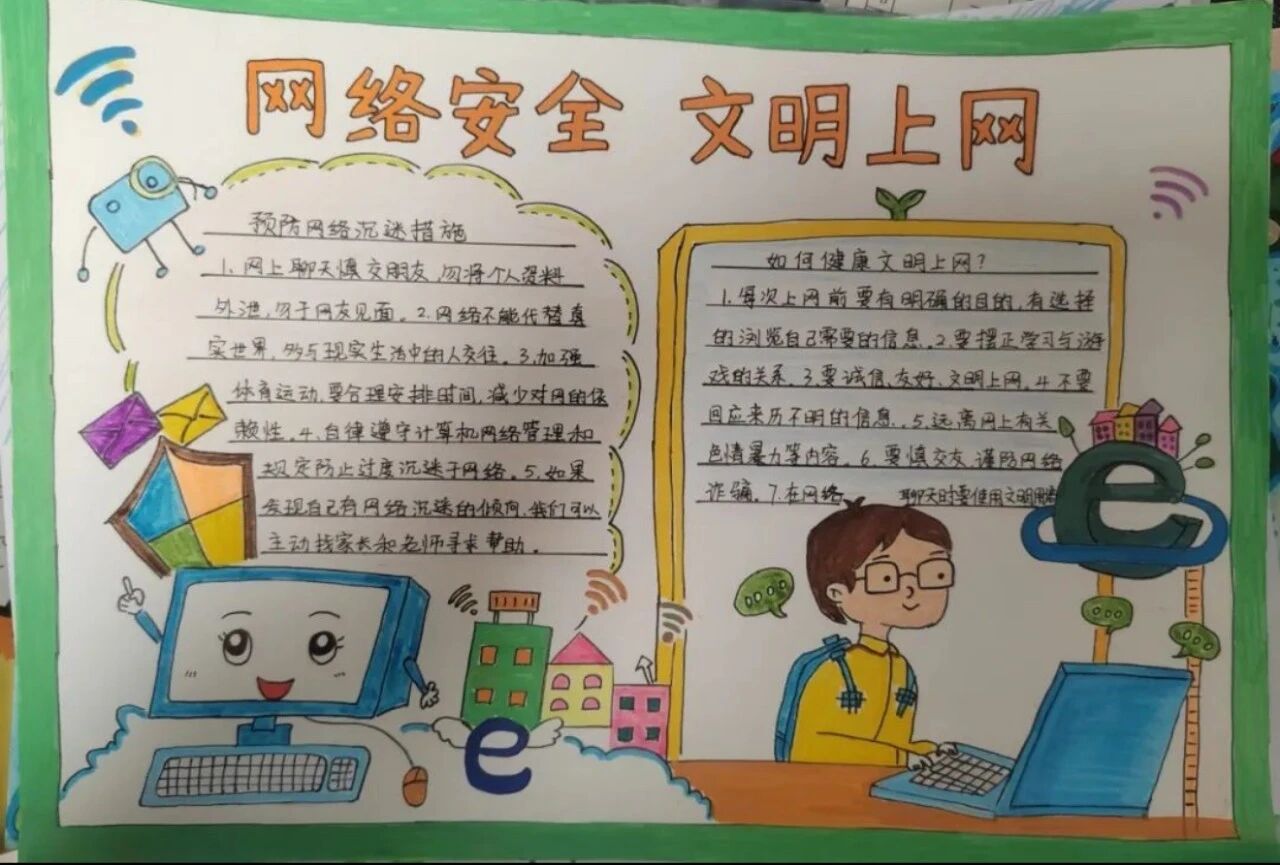 网络安全 文明上网
预防网络沉迷措施
1. 网上聊天慎交朋友,勿将个人资料
外泄,勿于网友见面。2.网络不能代替真
实世界,多与现实生活中的人交往。3.加强
体育运动,要合理安排时间,减少对网的依
赖性。4.自律遵守计算机网络管理和
规定防止过度沉迷于网络。5.如果
发现自己有网络沉迷的倾向,我们可以
主动找家长和老师寻求帮助。
如何健康文明上网?
1.每次上网前要有明确的目的,有选择
的浏览自己需要的信息。2.要摆正学习与游
戏的关系。3.要诚信、友好、文明上网。4.不要
回应来历不明的信息。5.远离网上有关
色情暴力等内容。6.要慎交友,谨防网络
诈骗。7.在网络 聊天时要使用文明用
e
e